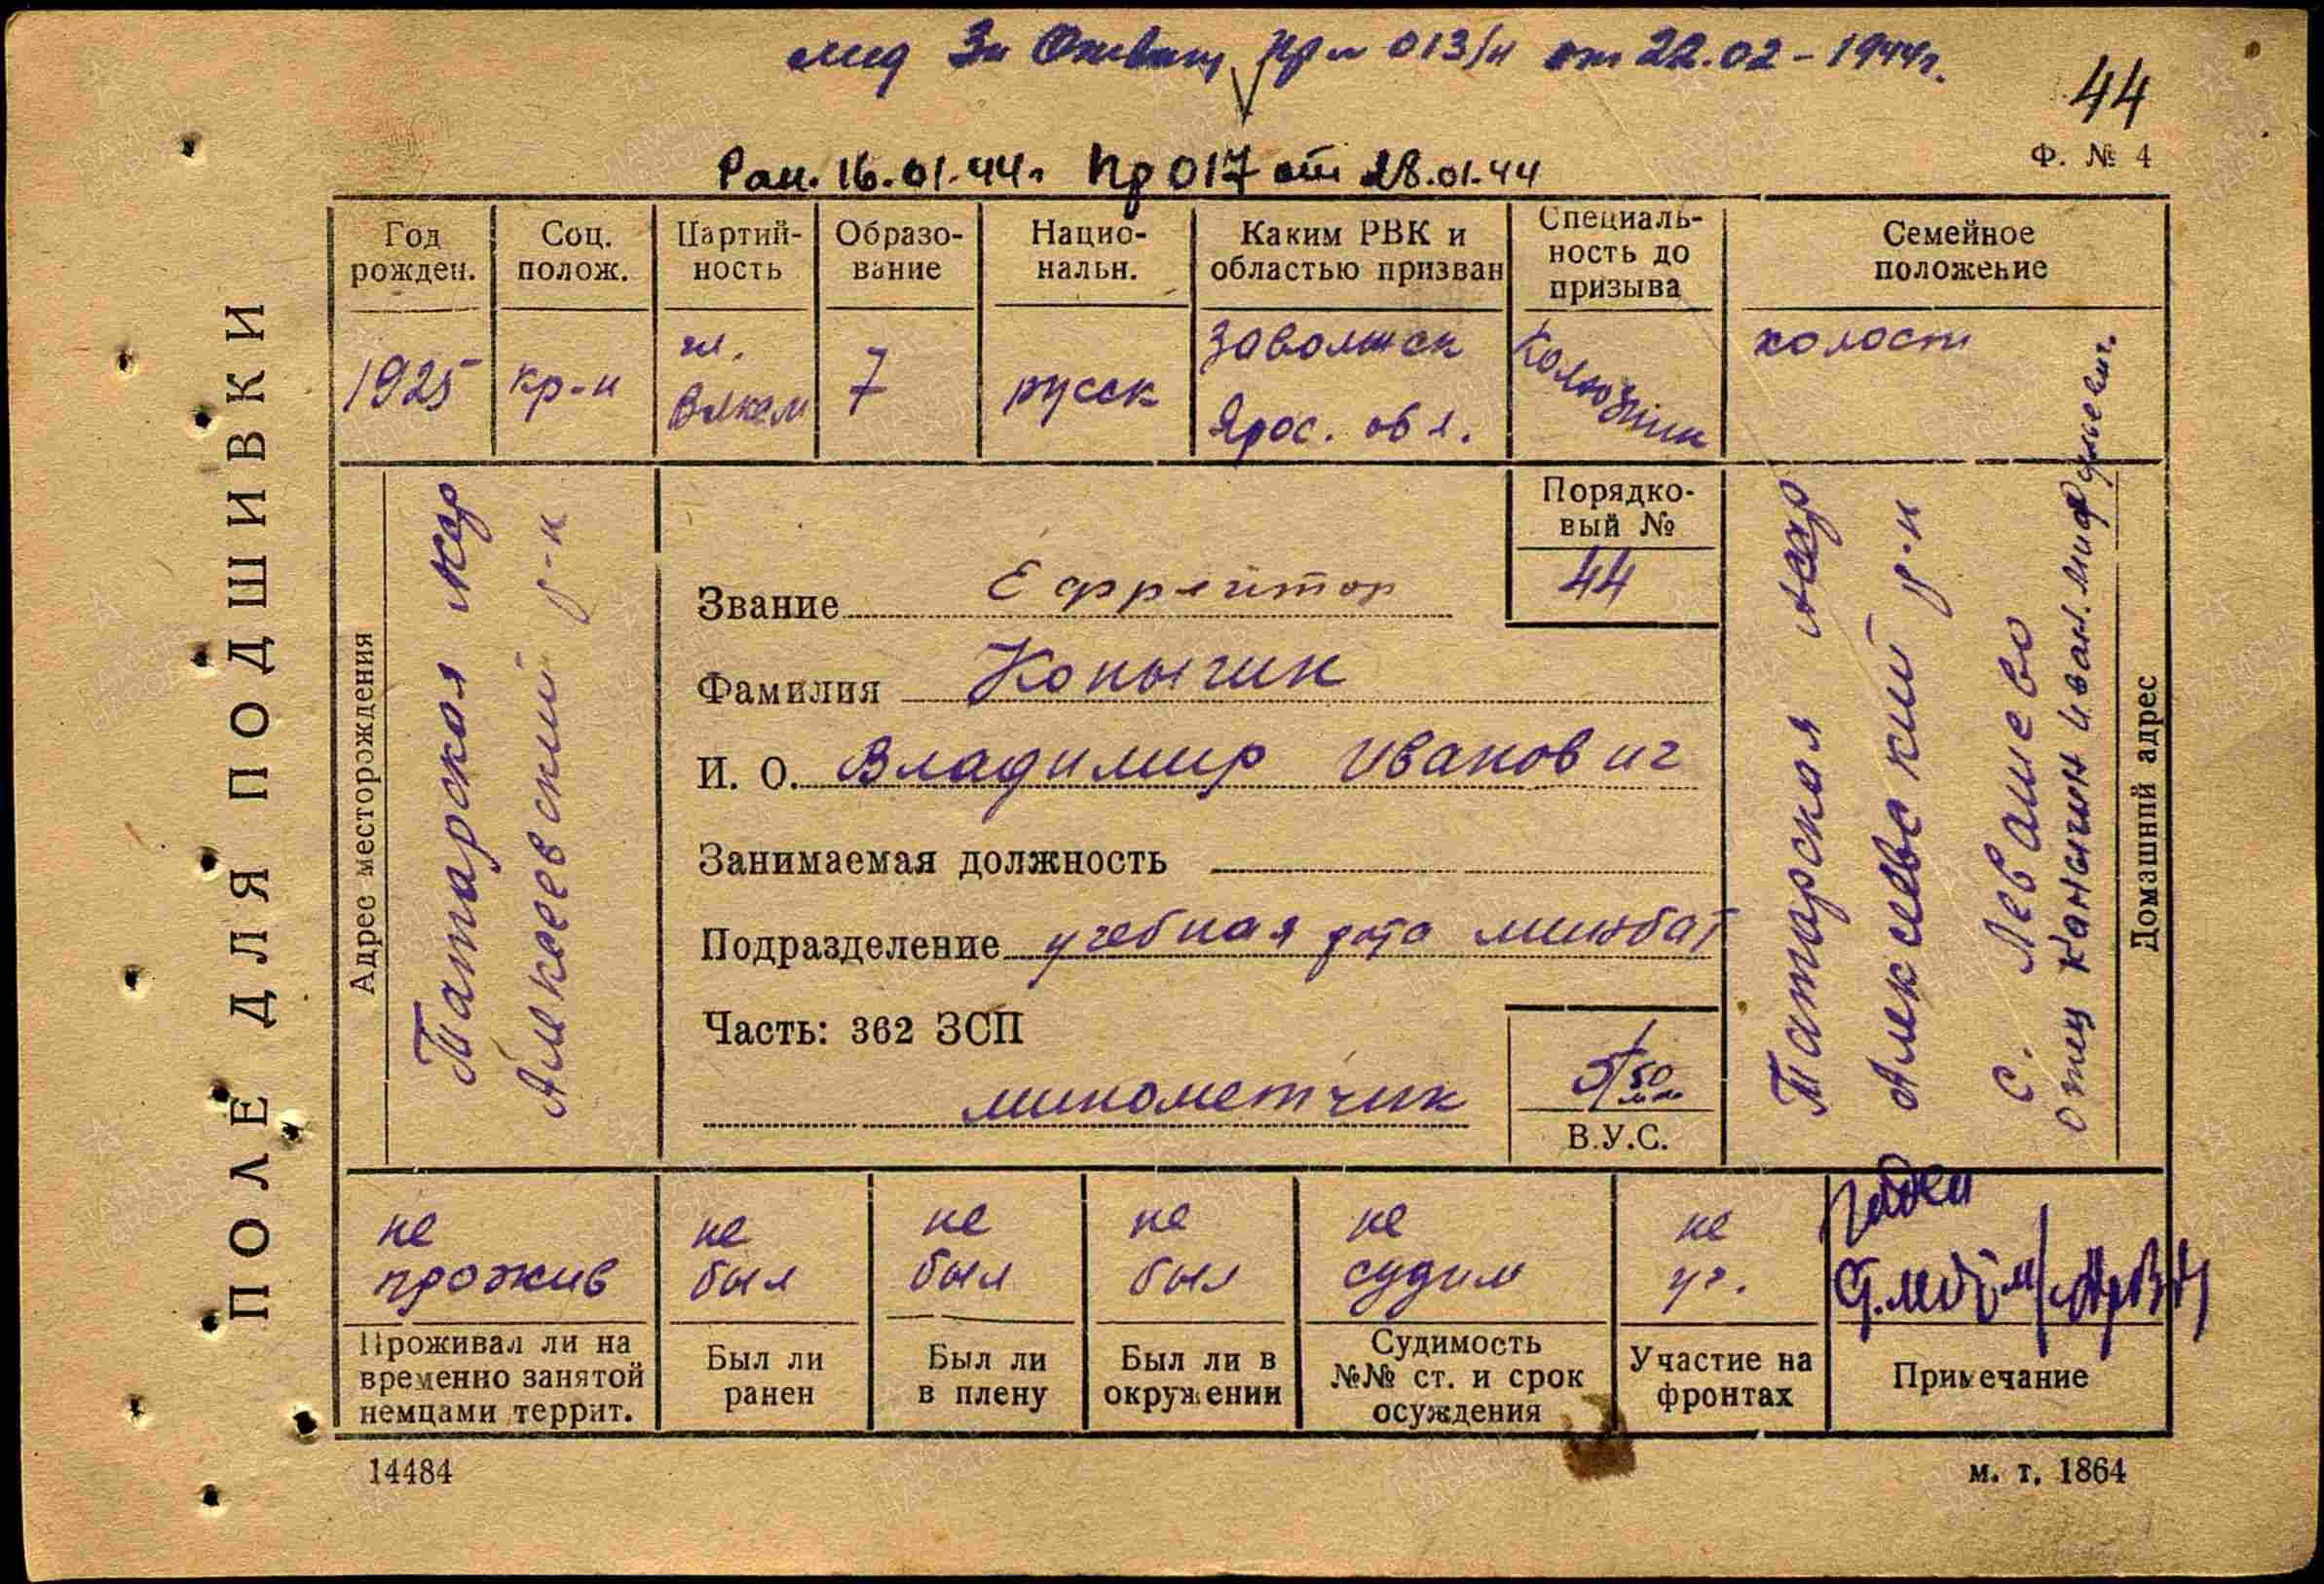 мед За Отвагу пр 013/н от 22.02-1944г.
44
Ф. № 4
Ран. 16.01.44г Пр 017 от 28.01.44
ПОЛЕ ДЛЯ ПОДШИВКИ
Год рожден.
1925
Соц. полож.
кр-н
Партий-
ность
чл.
Влксм
Образо-
вание
7
Нацио-
нальн.
русск
Каким РВК и
областью призван
Заволжск
Ярос. обл.
Специаль-
ность до
призыва
Колхозник
Семейное
положение
холост
Адрес месторождения
Татарская АССР
Алексеевский р-н
Порядко-
вый №
44
Звание Ефрейтор
Фамилия Копыгин
И. О. Владимир Иванович
Занимаемая должность
Подразделение учебная рота минбат
Часть: 362 ЗСП
минометчик
5/50
мм
В.У.С.
Татарская АССР
Алексеевский р-н
с. Левашево
отец Иван
Домашний адрес
не
прожив
Проживал ли на
временно занятой
немцами террит.
не
был
Был ли
ранен
не
был
Был ли
в плену
не
был
Был ли в
окружении
не
судим
Судимость
№№ ст. и срок
осуждения
не
уч.
Участие на
фронтах
Годен
Примечание
14484
м. т. 1864